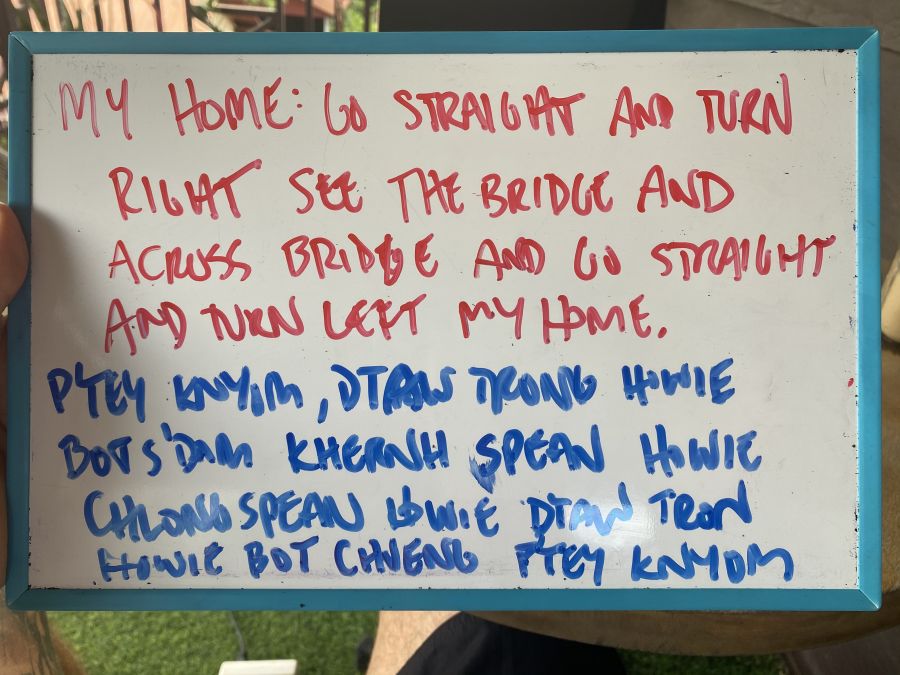 MY HOME: GO STRAIGHT AND TURN
RIGHT SEE THE BRIDGE AND
ACROSS BRIDGE AND GO STRAIGHT
AND TURN LEFT MY HOME.
PTEY KNYOM, DTAW TRONG HOWIE
BOT S'DAM KHERNH SPEAN HOWIE
CHLONG SPEAN HOWIE DTAW TRON
HOWIE BOT CHVENG PTEY KNYOM